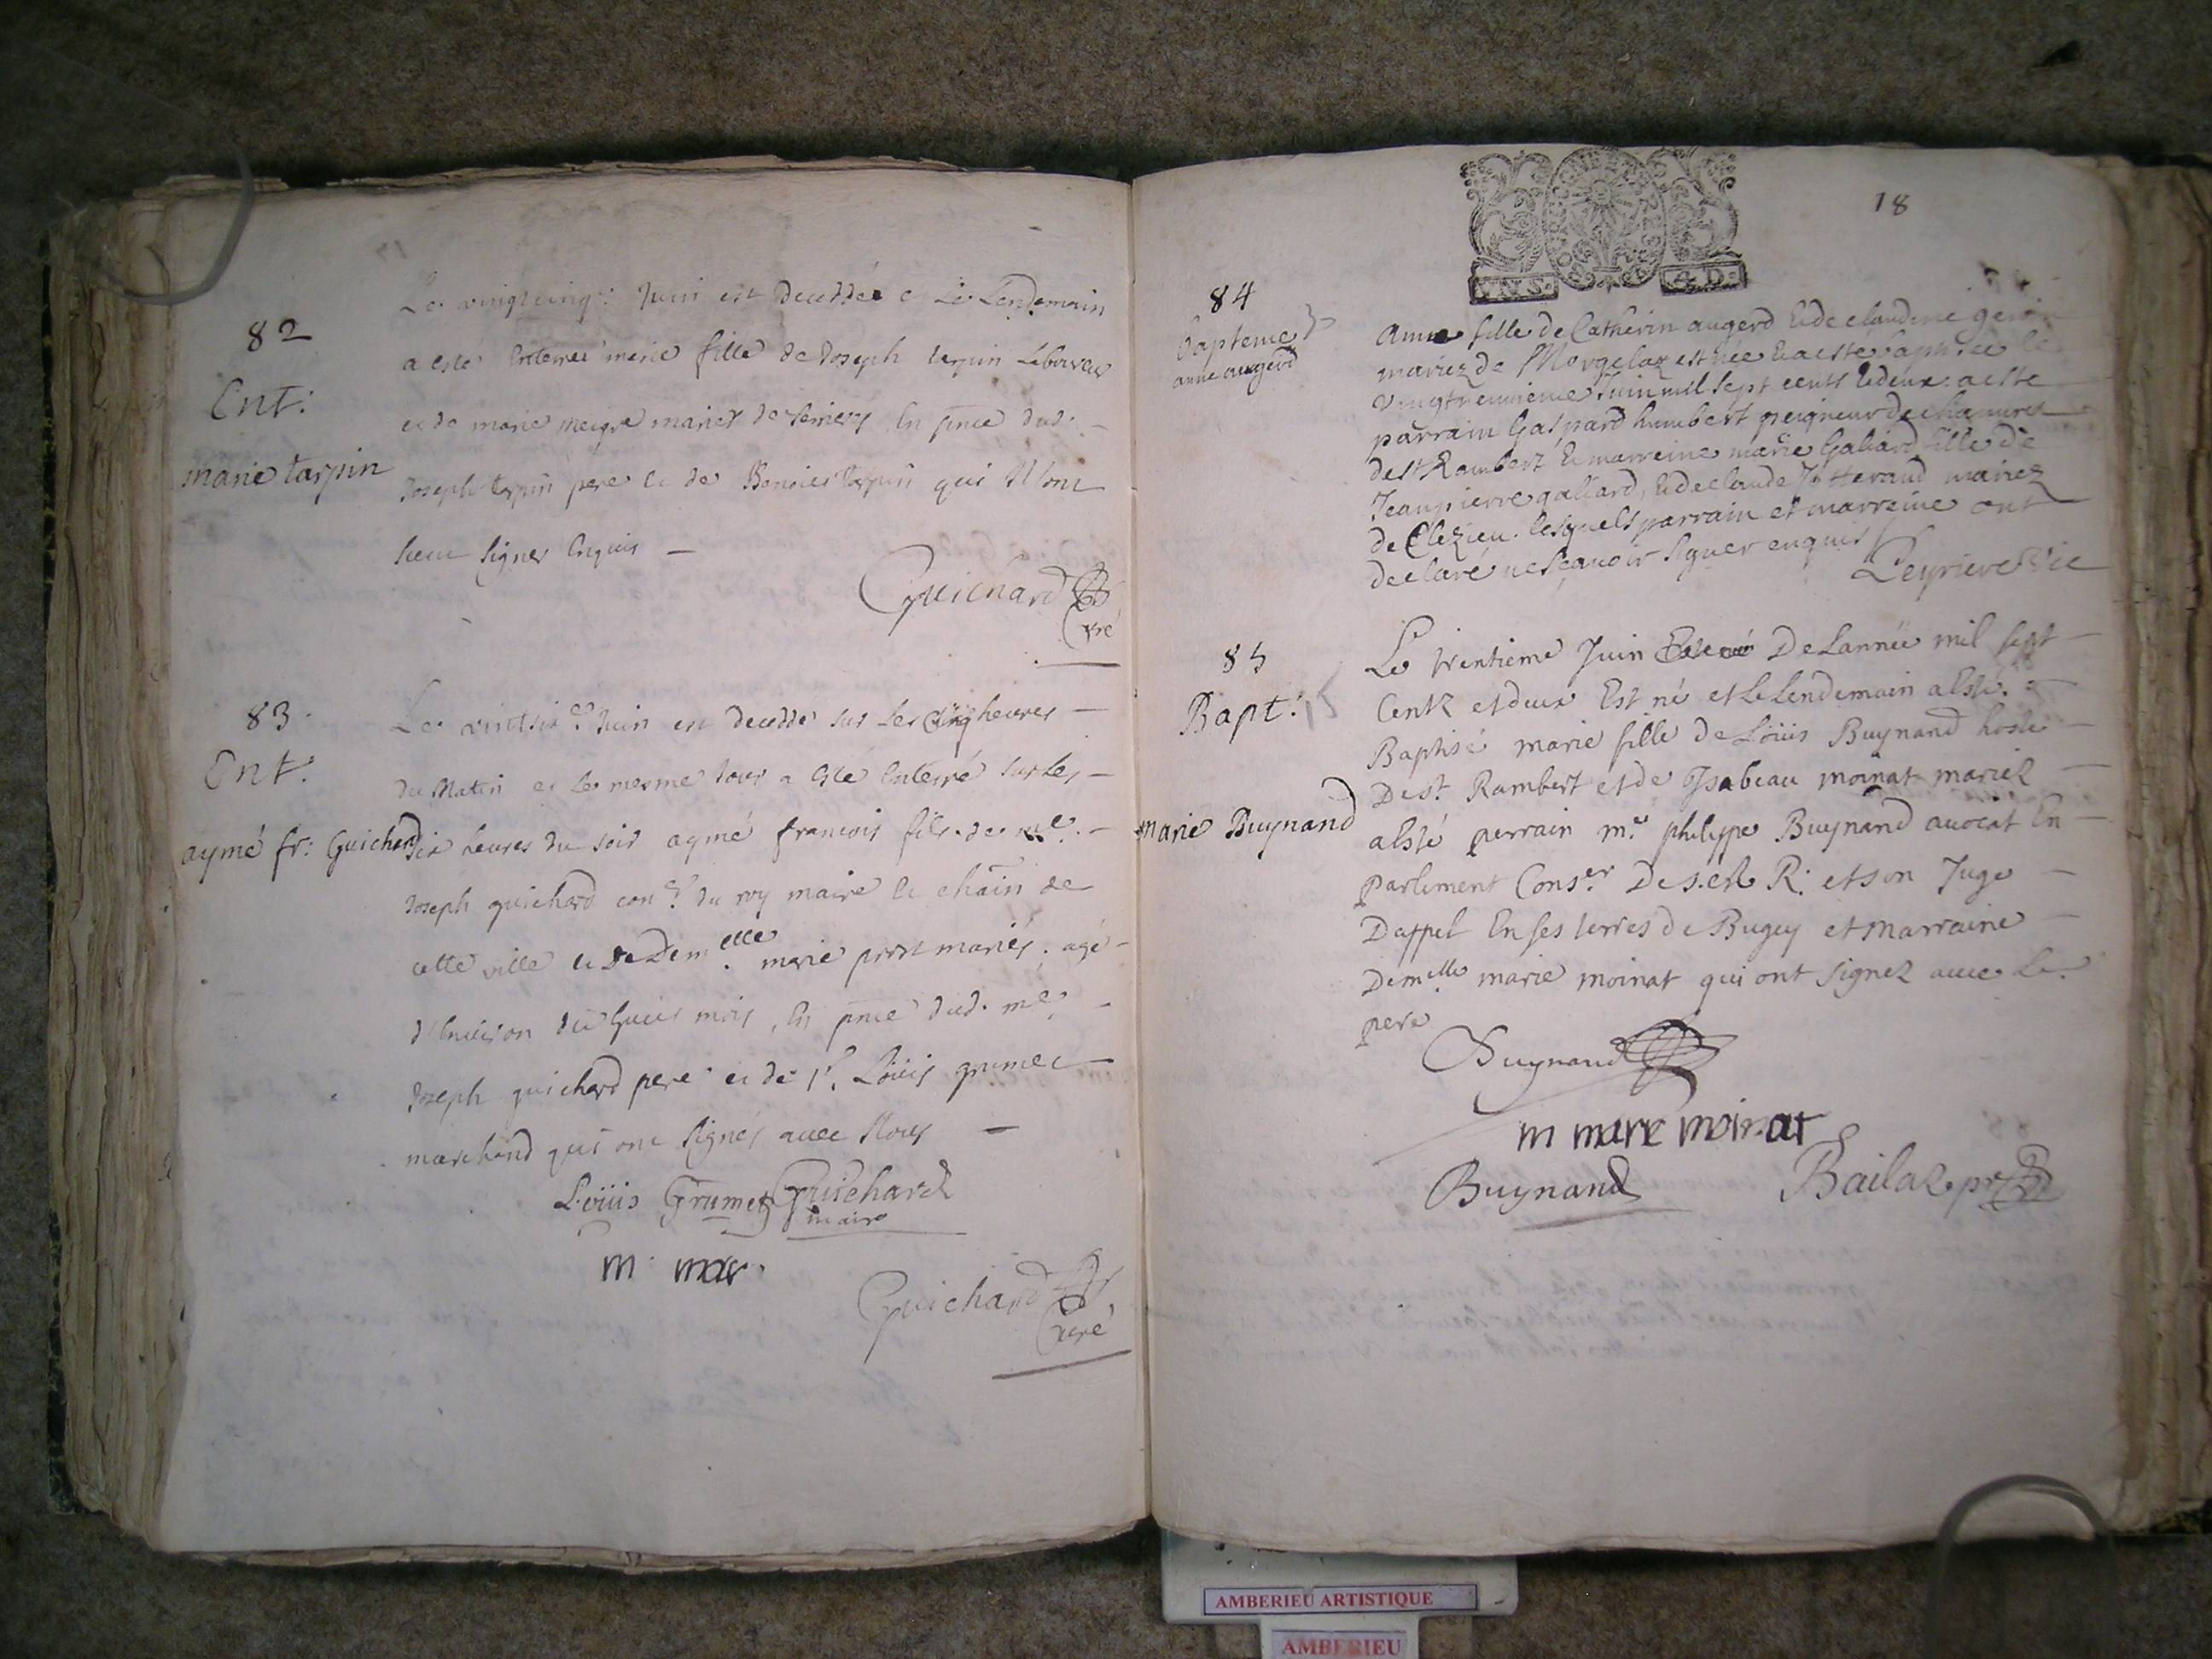 82
Ent:
marie tarpin
Le vingtcinq.e Juin est decedée e Le Lendemain
a esté Enterrée marie fille de Joseph tarpin Laboureur
et de marie meigre mariés de Serrieres En pnce dud.
Joseph tarpin pere et de Benoict tarpin qui N'ont
sceu signer Enquis —
Guichard
Curé
83
Ent:
aymé fr: Guichard
Le vintsix.e Juin est decedde sur Les Cinq heures —
du Matin et Le mesme Jour a esté Enterré sur Les —
Six heures du soir aymé francois fils de me. —
Joseph guichard con.er du roy maire et chãin de
cette ville et de Dem.elle marie prost mariés. agé —
d'Environ dix huict mois, En pnce dud. me. —
Joseph guichard pere et de sr. Loüis grumet —
marchand qui ont signés avec Nous —
Loüis Grumet Guichard
maire
m mar.
Guichard
Curé
18
84
bapteme
anne augerd
Anne fille de Catherin augerd & de claudine
mariez de Morgelaz est née & a esté baptisée le
vingtneuvieme Juin mil sept cents & deux. a esté
parrain Gaspard humbert peigneur de chanvres
de st Rambert & marreine marie Galiard fille de
Jeanpierre galiard, & de claude mariez
de Clezieu. lesquels parrain et marreine ont
declaré ne sçavoir signer enquis
Leyriere Vic
85
Bapt: 15
marie Buynand
Le trentieme Juin De Lannée mil sept —
Centz et deux Est né et Le Lendemain a Esté. —
Baptisé marie fille de Loüis Buynand hoste —
De st. Rambert et de Isabeau moinat mariez —
a Esté perrain me. philippe Buynand avocat En —
parlement Cons.er De s. ch R: et son Juge —
Dappel En ses terres de Bugey et marraine —
Dem.elle marie moinat qui ont signez avec Le.
pere
Buynand
m marie moinat
Buynand Bailaz pr
AMBERIEU ARTISTIQUE
AMBERIEU